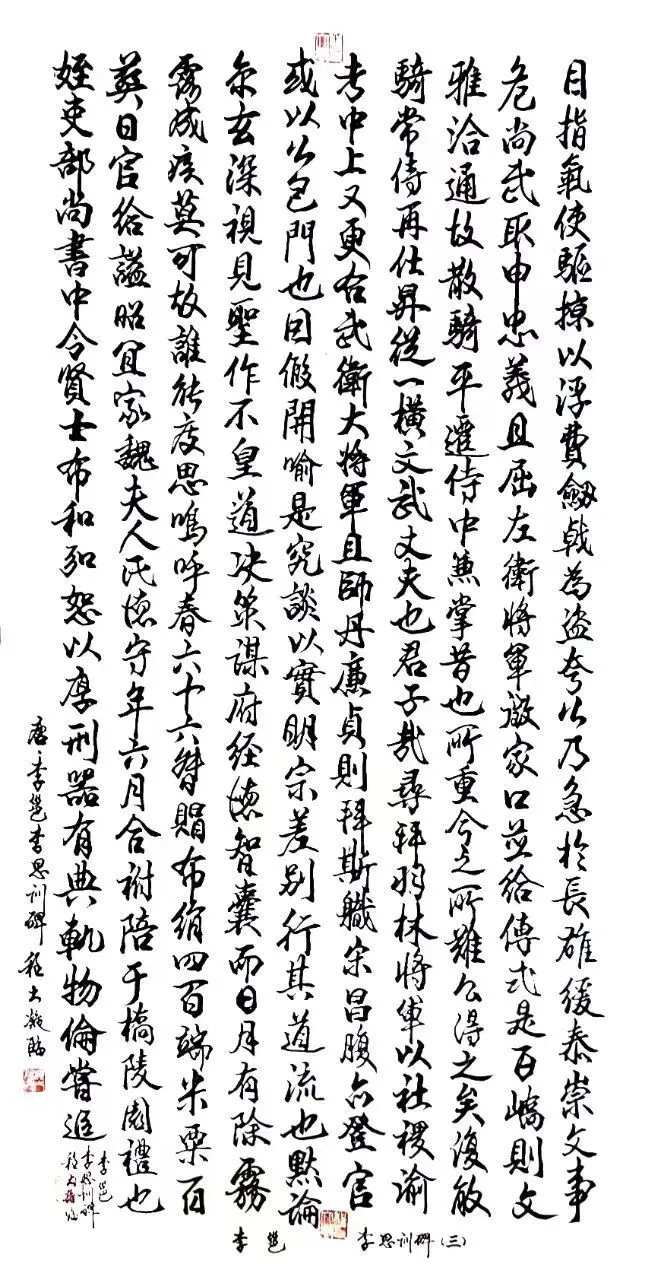 目指氣使驅掠以浮費劔戟為盗夸公乃急於長雄緩泰崇文事
危尚武取申忠義且屈左衛將軍放家口並給傳式是百城則文
雅洽通故散騎平遷侍中兼掌昔也所重今之所難公得之矣復敏
騎常侍再仕昇從一橫文武丈夫也君子哉尋拜羽林將軍以社稷諭
考中上又更右武衛大將軍且師丹廉貞則拜斯職宋昌腹心登官
或以公包門也因假開喻是究談以實明宗差別行其道流也默論
尔玄深視見聖作不皇道决策謀府經德智囊而日月有除霧
露成疾莫可救誰能度思嗚呼春六十六贈賻布絹四百端米粟百
葬日官給謚昭宜家魏夫人氏德守年六月合祔陪于橋陵園禮也
姪吏部尚書中令賢士布和弘恕以厚刑器有典軌物倫嘗追
唐·李邕李思訓碑 程大 臨
李邕
李思訓碑
程大 臨
李邕 李思训碑(三)